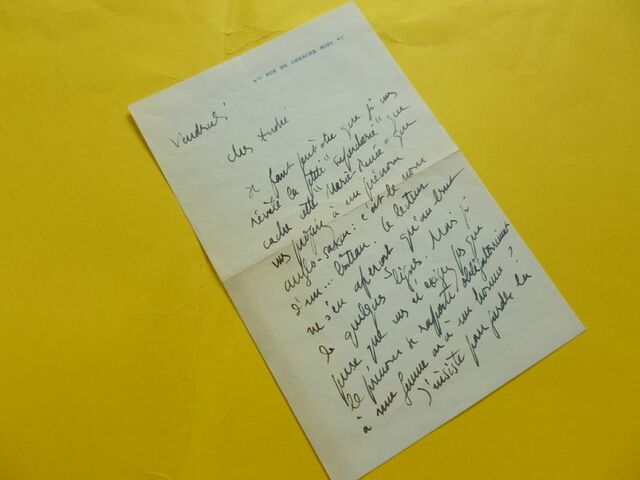 RUE DU CHERCHE MIDI VI
Vendredi
cher André
Il faut peut-être que je vous
révèle la petite "supercherie" que
cache cette "Marie-Renée" que
vous préférez à un prénom
anglo-saxon : c'est le nom
d'un... bateau. Le lecteur
ne s'en apercevrait qu'au bout
de quelques lignes. Mais je
pense que vous n'exigez pas que
le prénom se rapporte obligatoirement
à une femme ou à un homme ?
J'insiste pour garder la